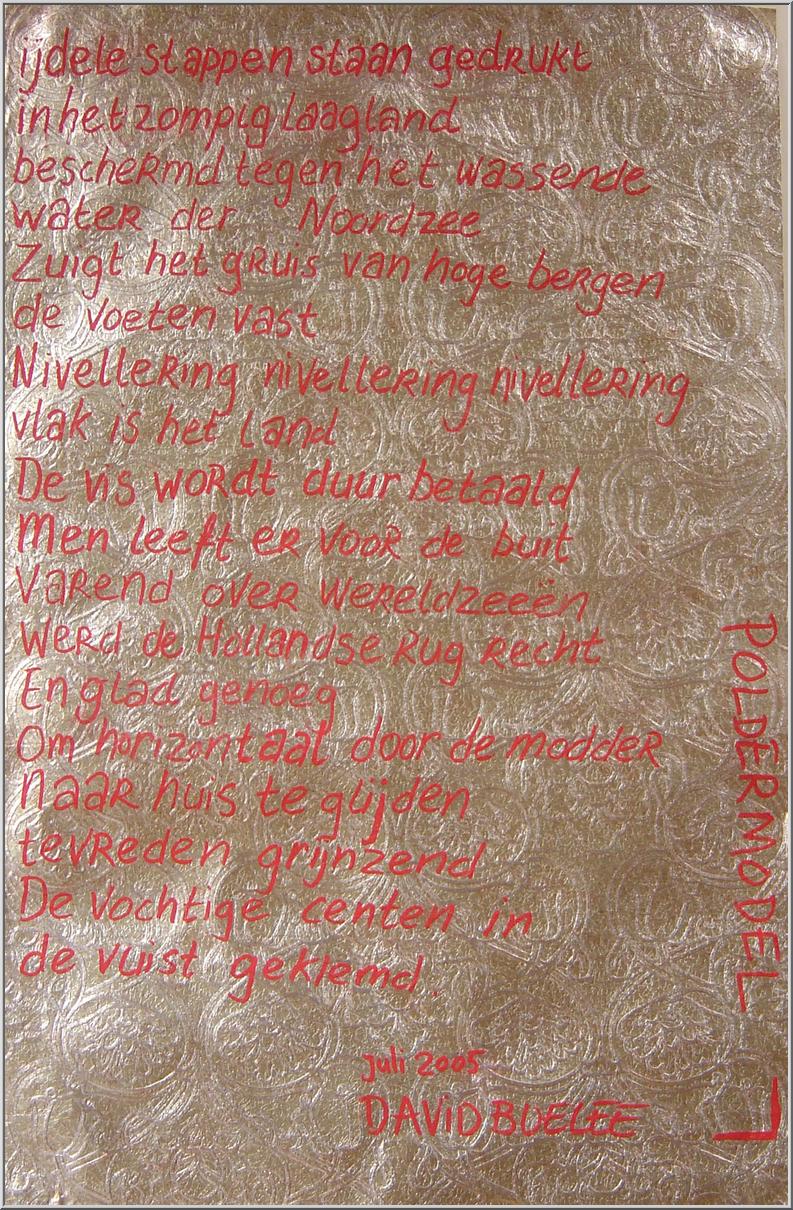 ijdele stappen staan gedrukt
in het zompig laagland
beschermd tegen het wassende
water der Noordzee
Zuigt het gruis van hoge bergen
de voeten vast
Nivellering nivellering nivellering
vlak is het land
De vis wordt duur betaald
Men leeft er voor de buit
Varend over wereldzeeën
werd de Hollandse Rug Recht
En glad genoeg
Om horizontaal door de modder
naar huis te glijden
tevreden grijnzend
De vochtige centen in
de vuist geklemd.
POLDERMODEL
juli 2005
DAVID BUELEE